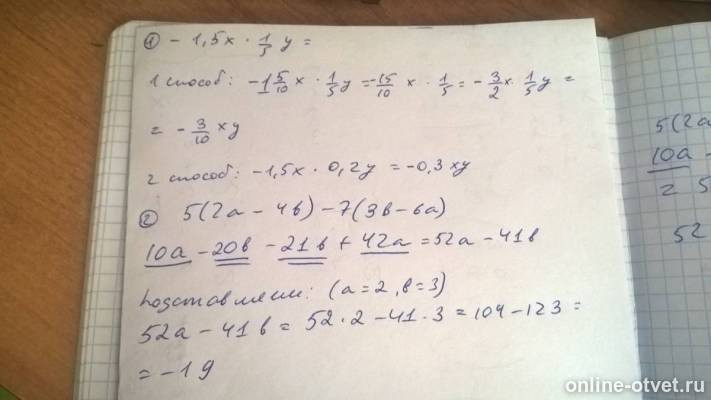 ① - 1,5x · 1/5 y =
1 способ: -1 5/10 x · 1/5 y = -15/10 x · 1/5 = - 3/2 x · 1/5 y =
= - 3/10 xy
2 способ: -1,5x · 0,2y = -0,3xy
② 5(2a - 4b) - 7(3b - 6a)
10a - 20b - 21b + 42a = 52a - 41b
Подставляем: (a = 2, b = 3)
52a - 41b = 52·2 - 41·3 = 104 - 123 =
= -19
5(2a
10a -
= 5
52
online-otvet.ru